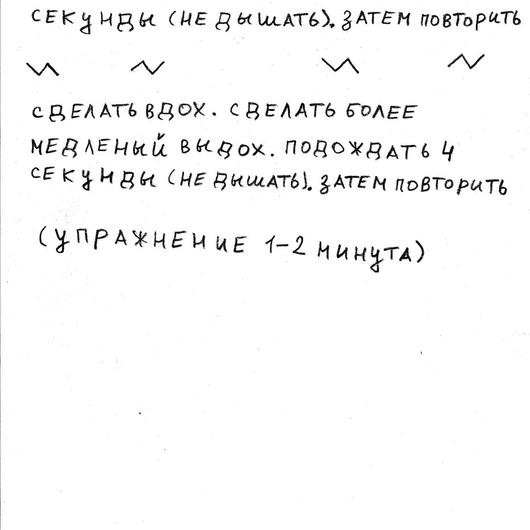 СЕКУНДЫ (НЕ ДЫШАТЬ). ЗАТЕМ ПОВТОРИТЬ
СДЕЛАТЬ ВДОХ. СДЕЛАТЬ БОЛЕЕ
МЕДЛЕНЫЙ ВЫДОХ. ПОДОЖДАТЬ 4
СЕКУНДЫ (НЕ ДЫШАТЬ). ЗАТЕМ ПОВТОРИТЬ
(УПРАЖНЕНИЕ 1-2 МИНУТА)